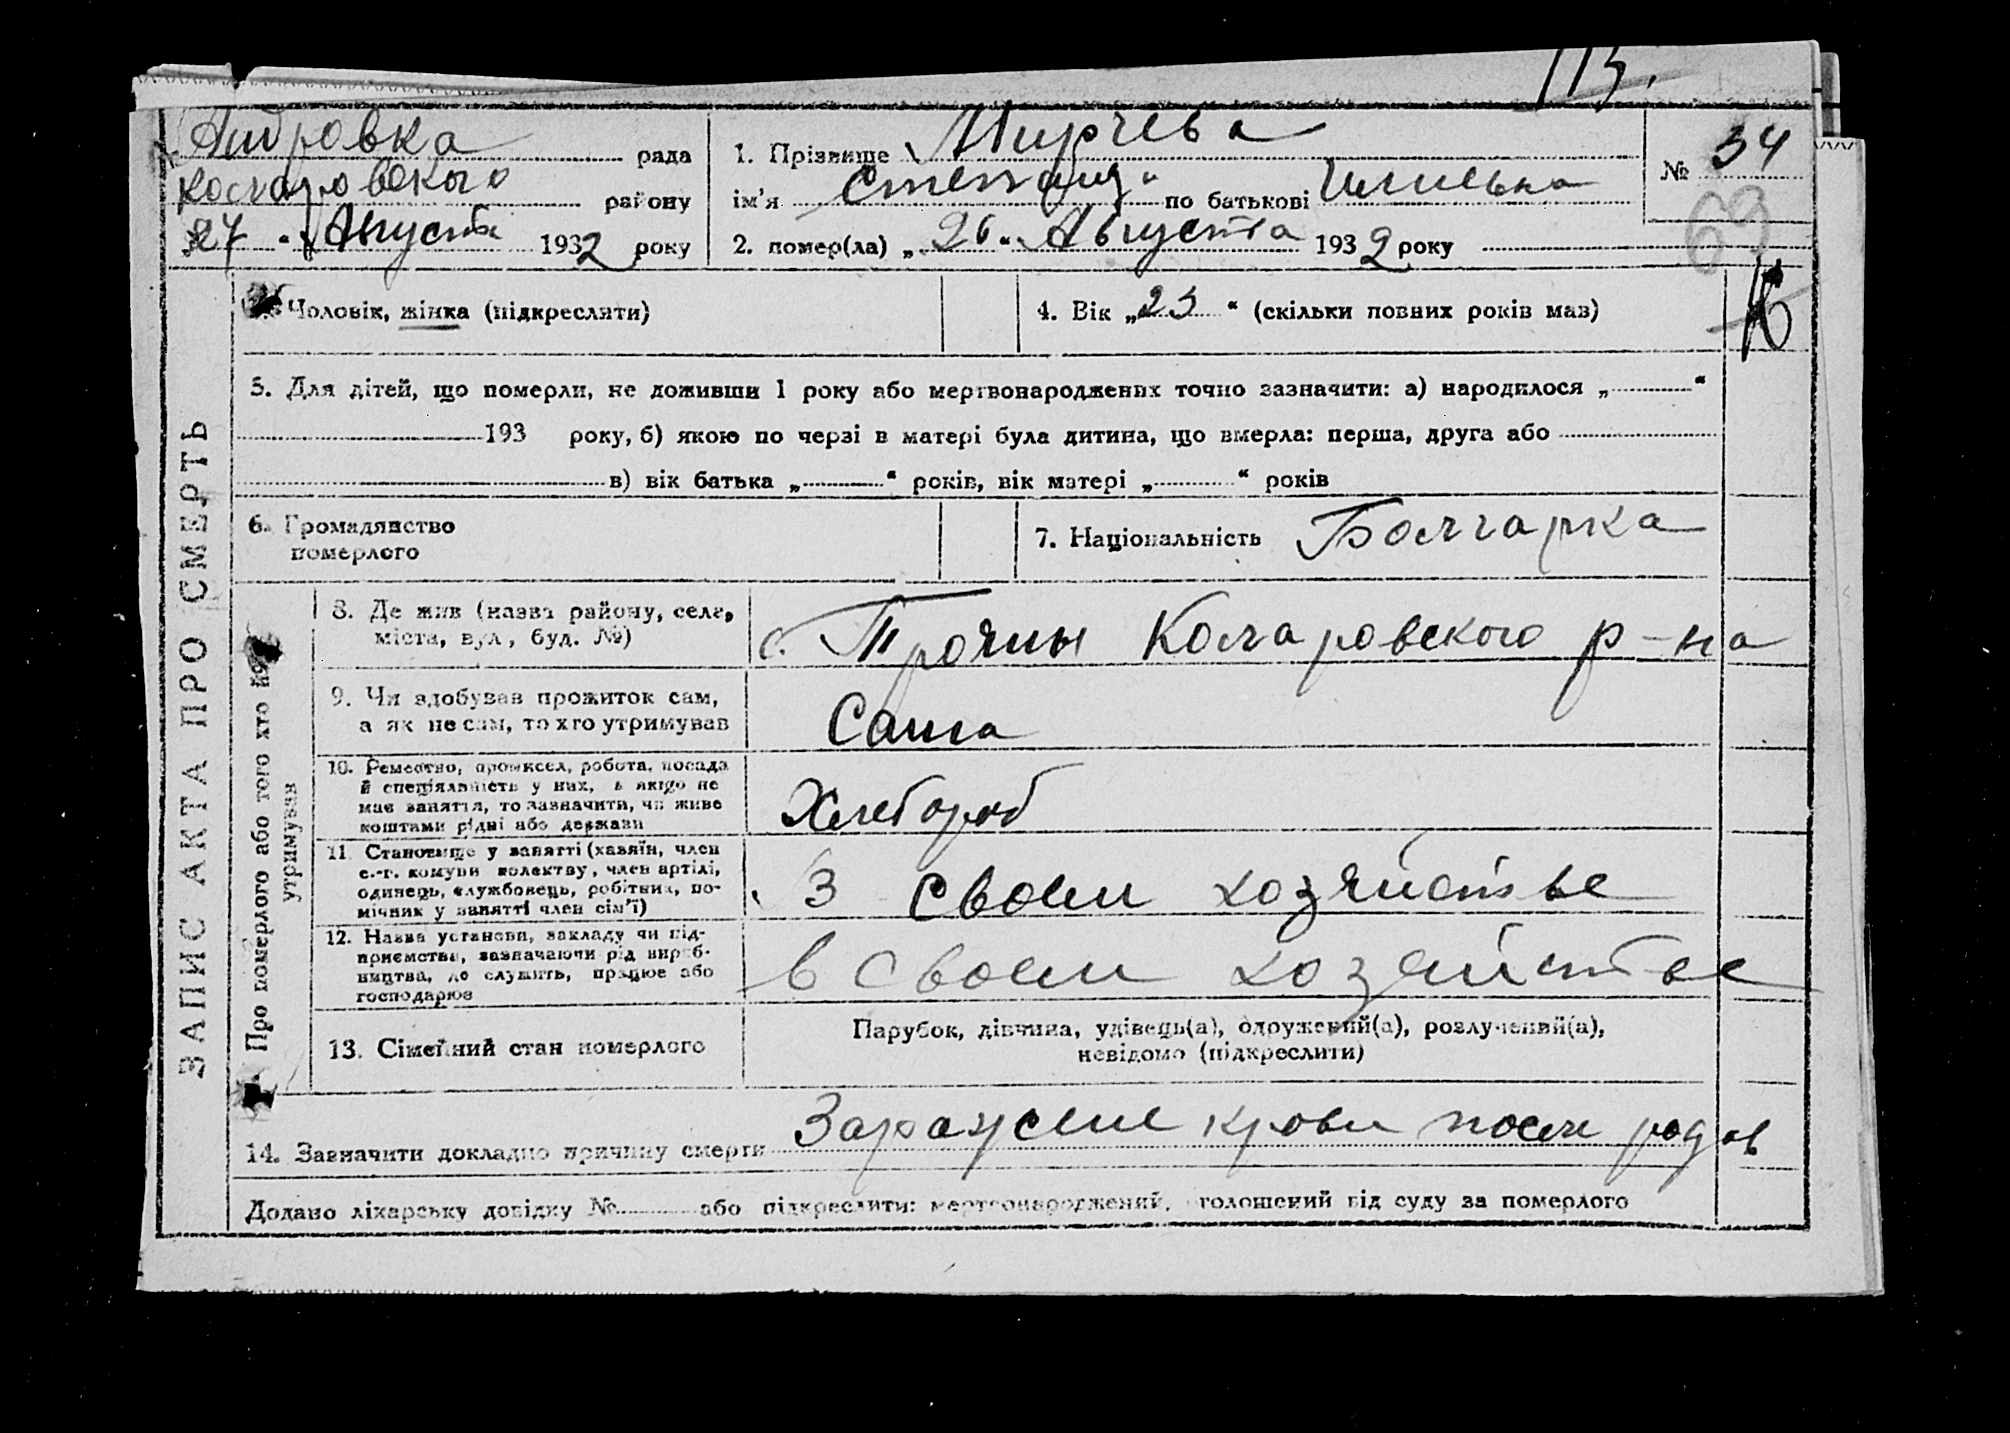 113.
рада
1. Прізвище Мирчева
№ 34
Коларовского району
ім'я Степанида по батькові
69
27 " Августа 1932 року
2. помер(ла) „ 26 " Августа 1932 року
ЗАПИС АКТА ПРО СМЕРТЬ
Чоловік, жінка (підкреслити)
4. Вік „ 23 " (скільки повних років мав)
5. Для дітей, що померли, не доживши 1 року або мертвонароджених точно зазначити: а) народилося „ "
193 року, б) якою по черзі в матері була дитина, що вмерла: перша, друга або
в) вік батька „ " років, вік матері „ " років
6. Громадянство
померлого
7. Національність Болгарка
Про померлого або того хто його
утримував
8. Де жив (назва району, села,
міста, вул, буд. №)
с. Трояны Коларовского р-на
9. Чи здобував прожиток сам,
а як не сам, то хто утримував
Сама
10. Ремество, промисел, робота, посада
й спеціяльність у них, а якщо не
має заняття, то зазначити, чи живе
коштами рідні або держави
Хлебороб
11. Становище у занятті (хазяїн, член
с.-г. комуни колективу, член артілі,
одинець, службовець, робітник, по-
мічник у занятті член сім'ї)
В своем хозяйстве
12. Назва установи, закладу чи під-
приємства, зазначаючи рід вироб-
ництва, де служить, працює або
господарює
в своем хозяйстве
13. Сімейний стан померлого
Парубок, дівчина, удівець(а), одружений(а), розлучений(а),
невідомо (підкреслити)
14. Зазначити докладно причину смерти Заражение крови после родов
Додано лікарську довідку № або підкреслити: мертвонароджений, оголошений від суду за померлого